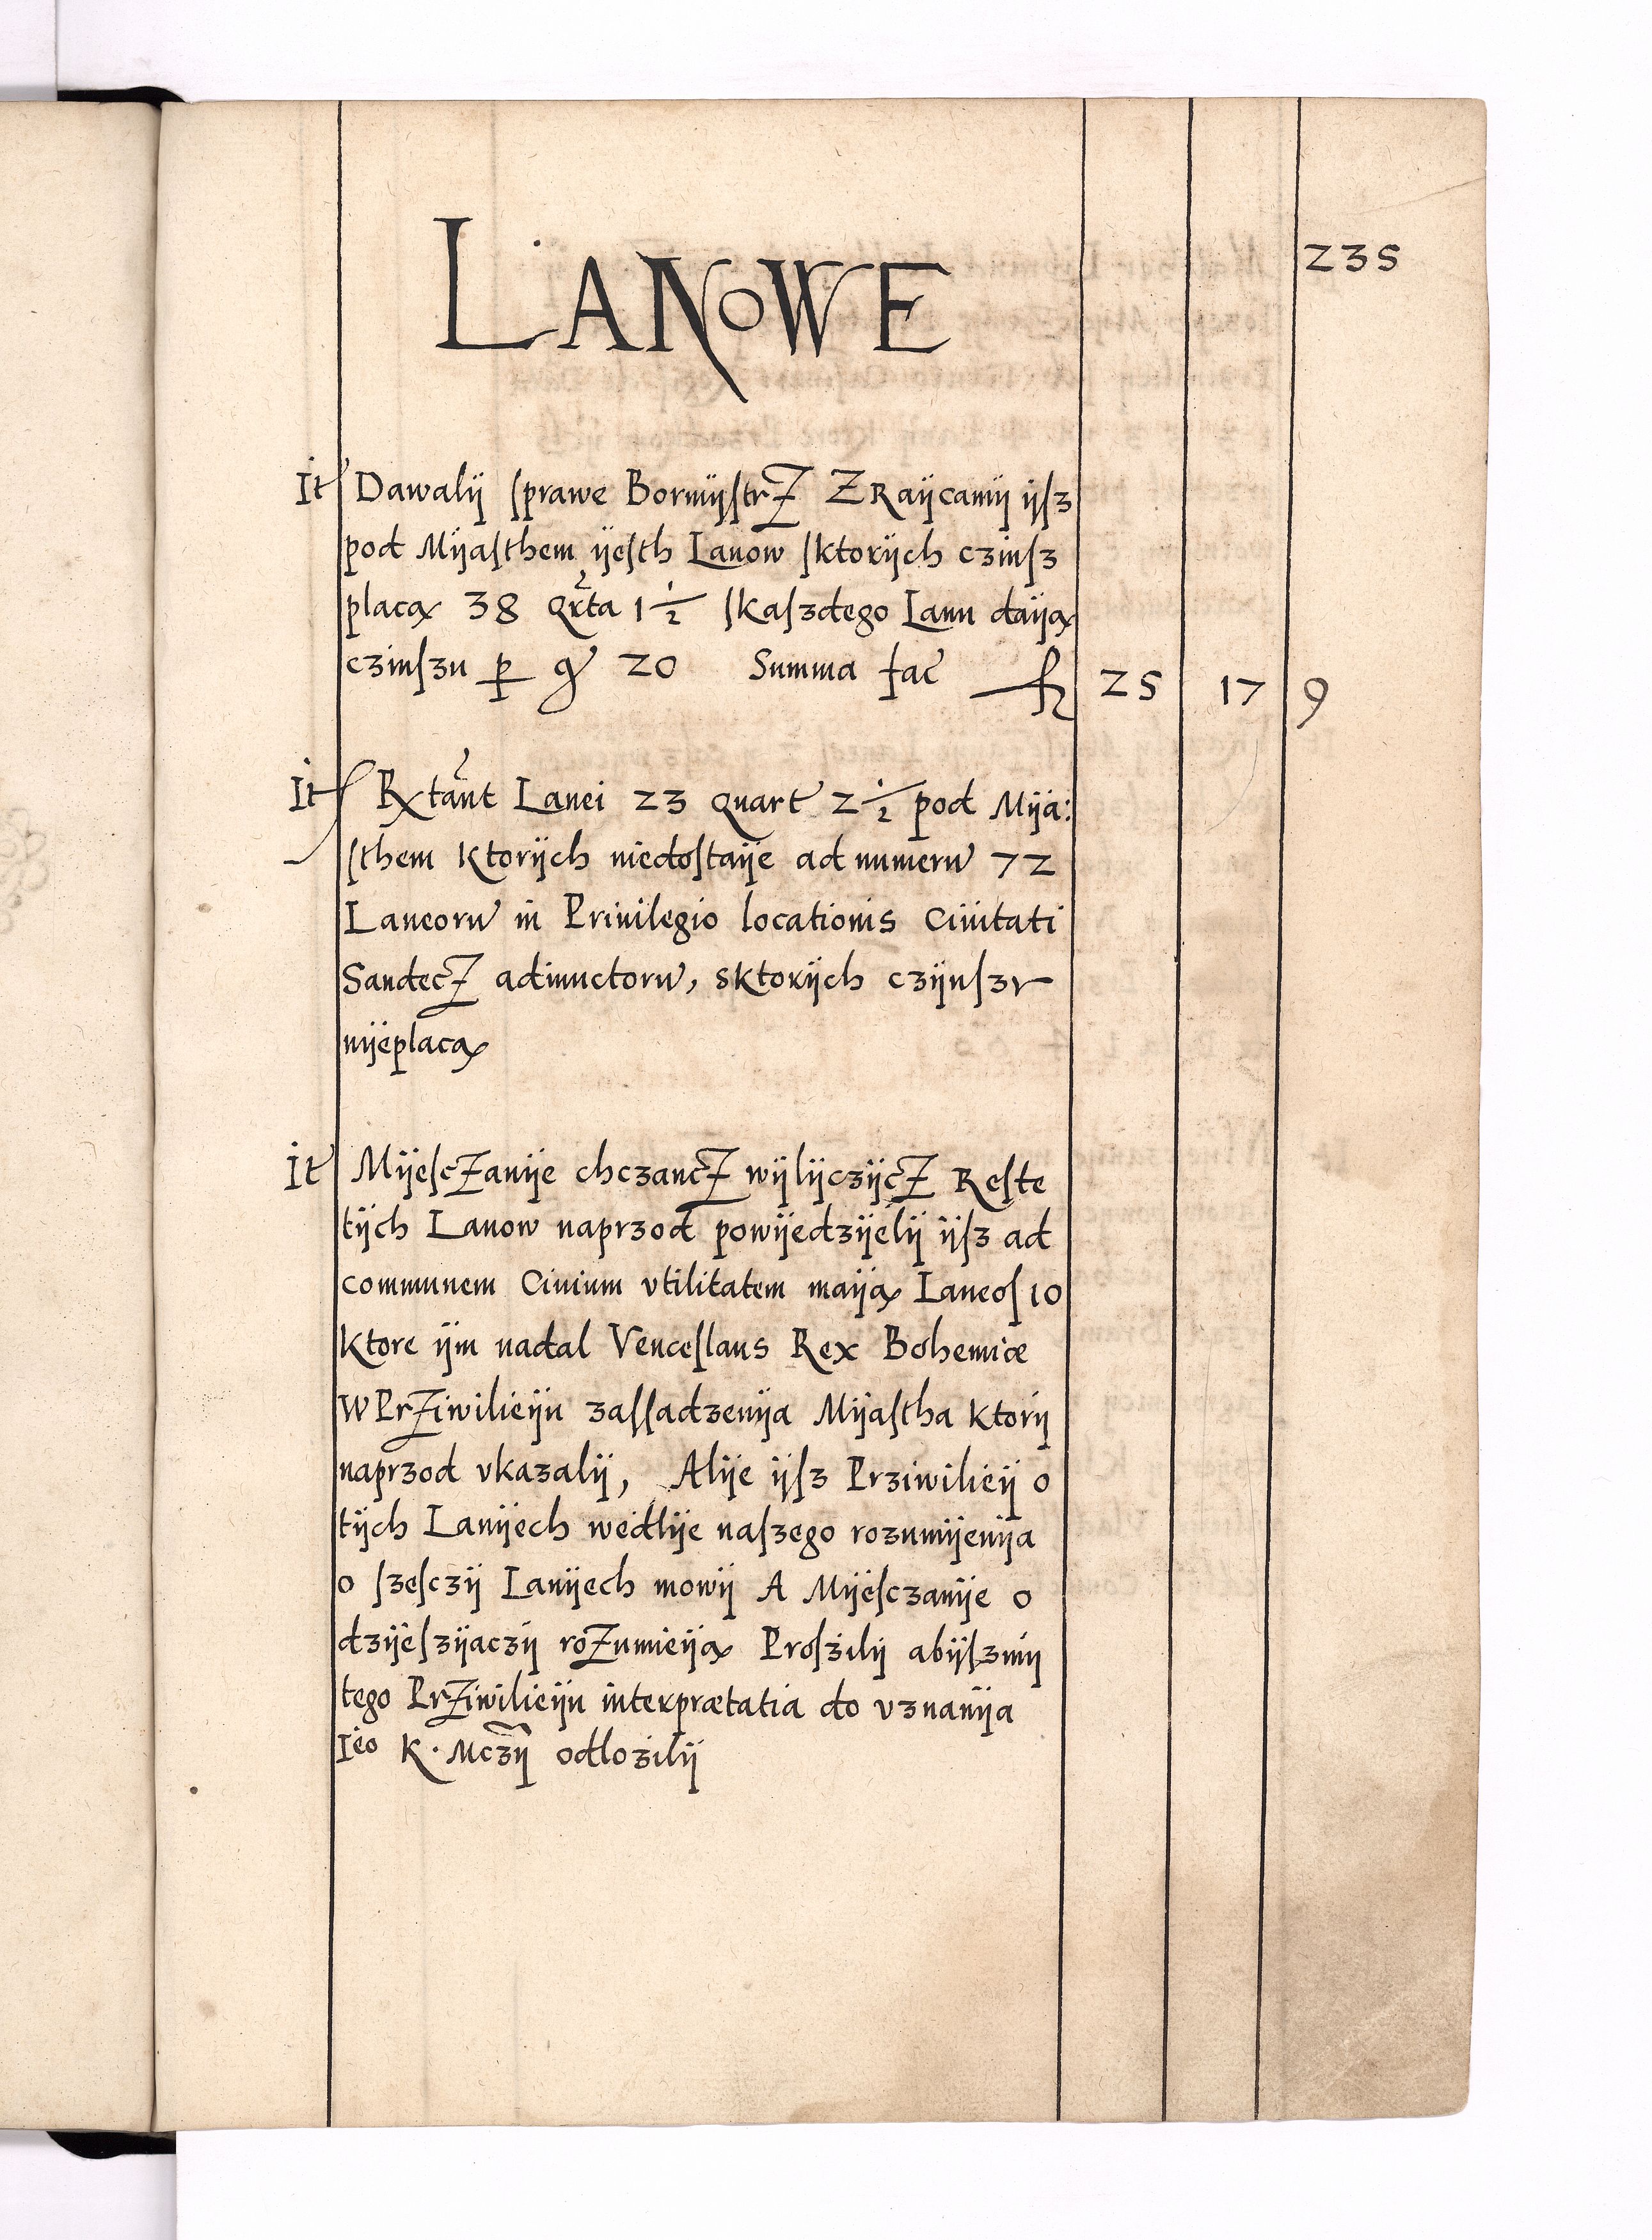 235
LANOWE
It Dawalÿ sprawe Bormÿstrz Z Raÿcamÿ ÿsz
pod Mÿasthem ÿesth Lanow sktorÿch czinsz
placą 38 qrta 1½ skaszdego Lanu daÿą
czinszu p gr 20 Summa fac fl 25 17 9
It Rxtant Lanei 23 quart 2½ pod Mÿa:
sthem ktorÿch niedostaÿe ad numeru 72
Laneoru in Priuilegio locationis Ciuitati
Sandecz adiunctoru, sktorÿch czÿnszu
nÿeplacą
It Mÿesczanÿe chczancz wÿlÿczÿcz Reste
tÿch Lanow naprzod powÿedzÿelÿ ÿsz ad
communem Ciuium vtilitatem maÿą Laneos 10
ktore ÿm nadal Venceslaus Rex Bohemiæ
W Prziwilieÿu zassadzenÿa Mÿastha ktorÿ
naprzod vkazalÿ, Alÿe ÿsz Prziwilieÿ o
tÿch Lanÿech wedlÿe naszego rozumÿenÿa
o szesczÿ Lanÿech mowÿ A Mÿesczanÿe o
dzÿeszÿaczÿ rozumieÿą Proszilÿ abÿszmÿ
tego Prziwilieÿu interprætatia do vznanÿa
Ieo K. Mczÿ odlozilÿ